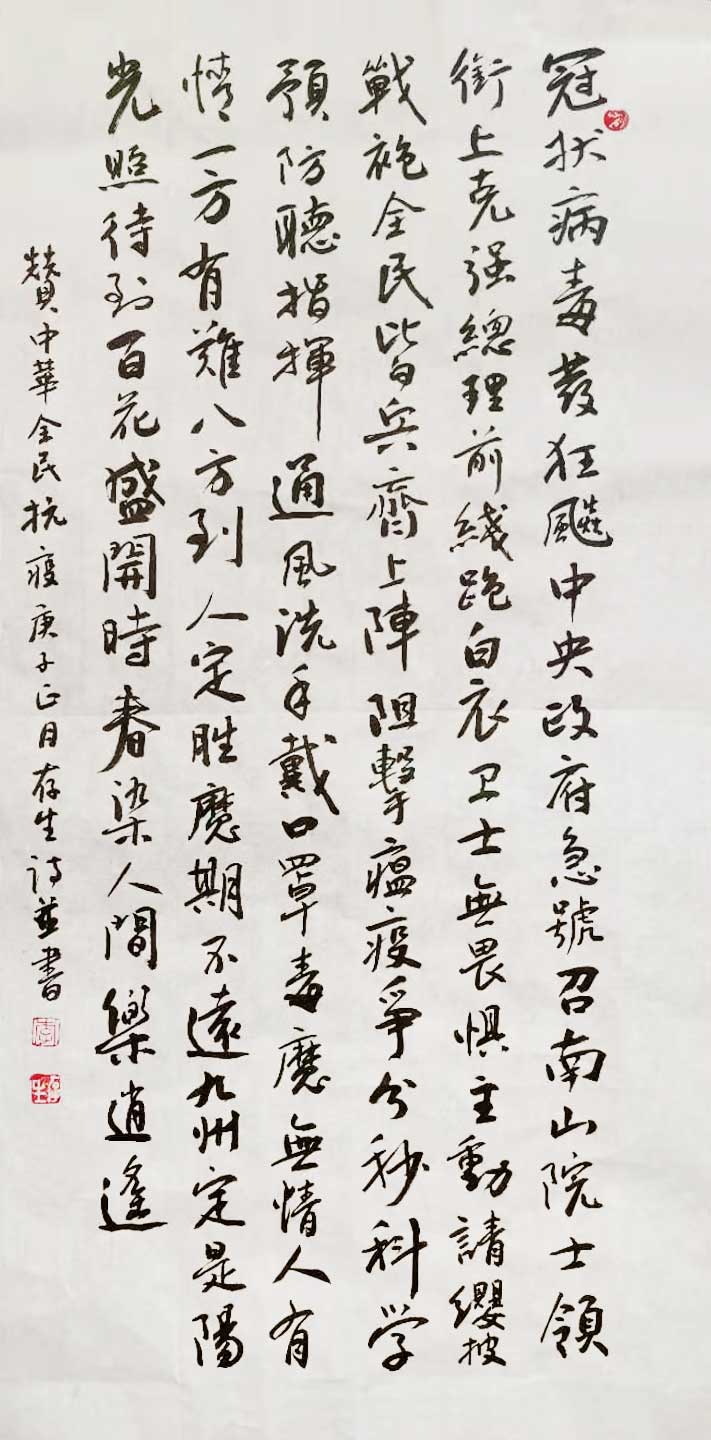 冠状病毒發狂飚中央政府急號召南山院士領
銜上克强總理前綫跑白衣卫士無畏惧主動請纓披
戰袍全民皆兵齊上陣阻擊瘟疫爭分秒科学
預防聽指揮通風洗手戴口罩毒魔無情人有
情一方有難八方到人定胜魔期不遠九州定是陽
光照待到百花盛開時春染人間樂逍遥
贊中華全民抗疫庚子正月存生詩並書